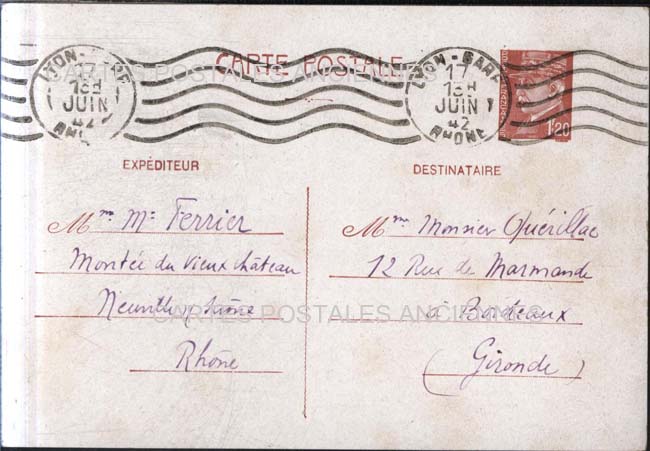 LYON-GARE
17
13H
JUIN
42
RHONE
CARTE POSTALE
LYON-GARE
17
13H
JUIN
42
RHONE
1F20
CARTES POSTALES ANCIENNES
EXPÉDITEUR
Mme Mce Ferrier
Montée du Vieux château
Neuville s/ Saône
Rhône
DESTINATAIRE
Mme Monsier Quérillac
12 Rue de Marmande
à Bordeaux
(Gironde)
CARTES POSTALES ANCIENNES